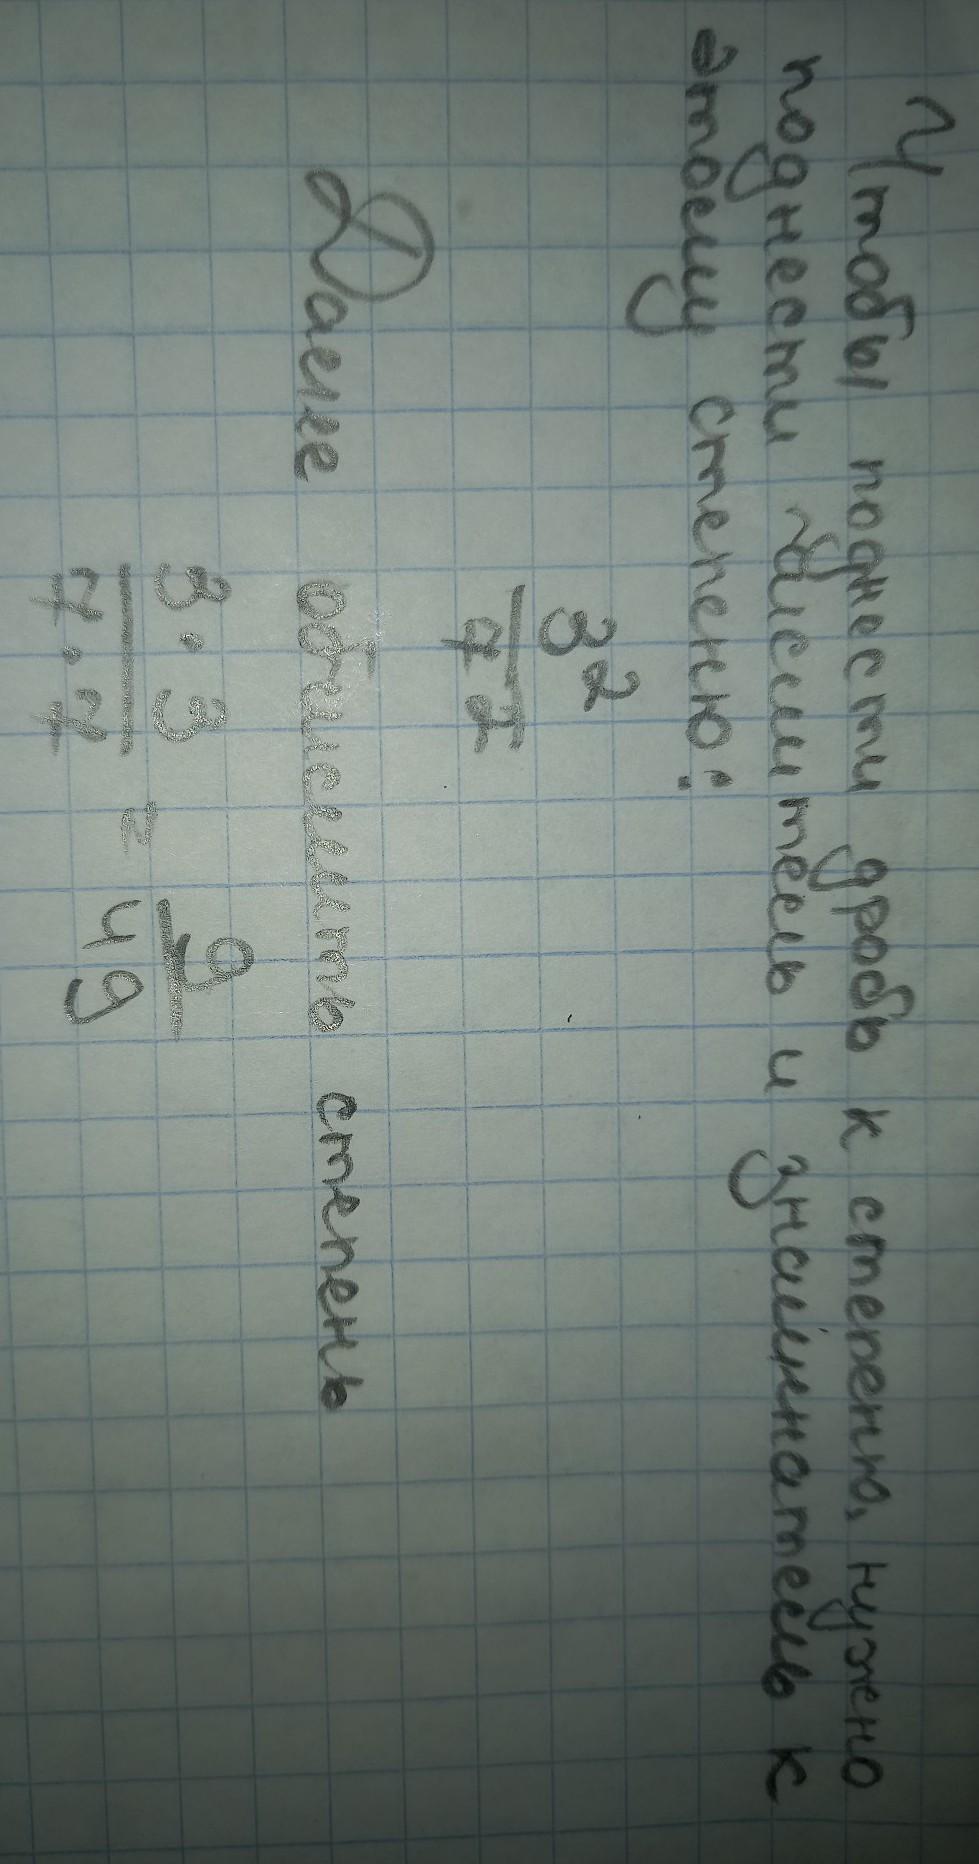 Чтобы поднести дробь к степеню, нужно
поднести числитель и знаменатель к
этому степеню:
3²
7²
Далее обчислить степень
3·3 = 9
7·7 49